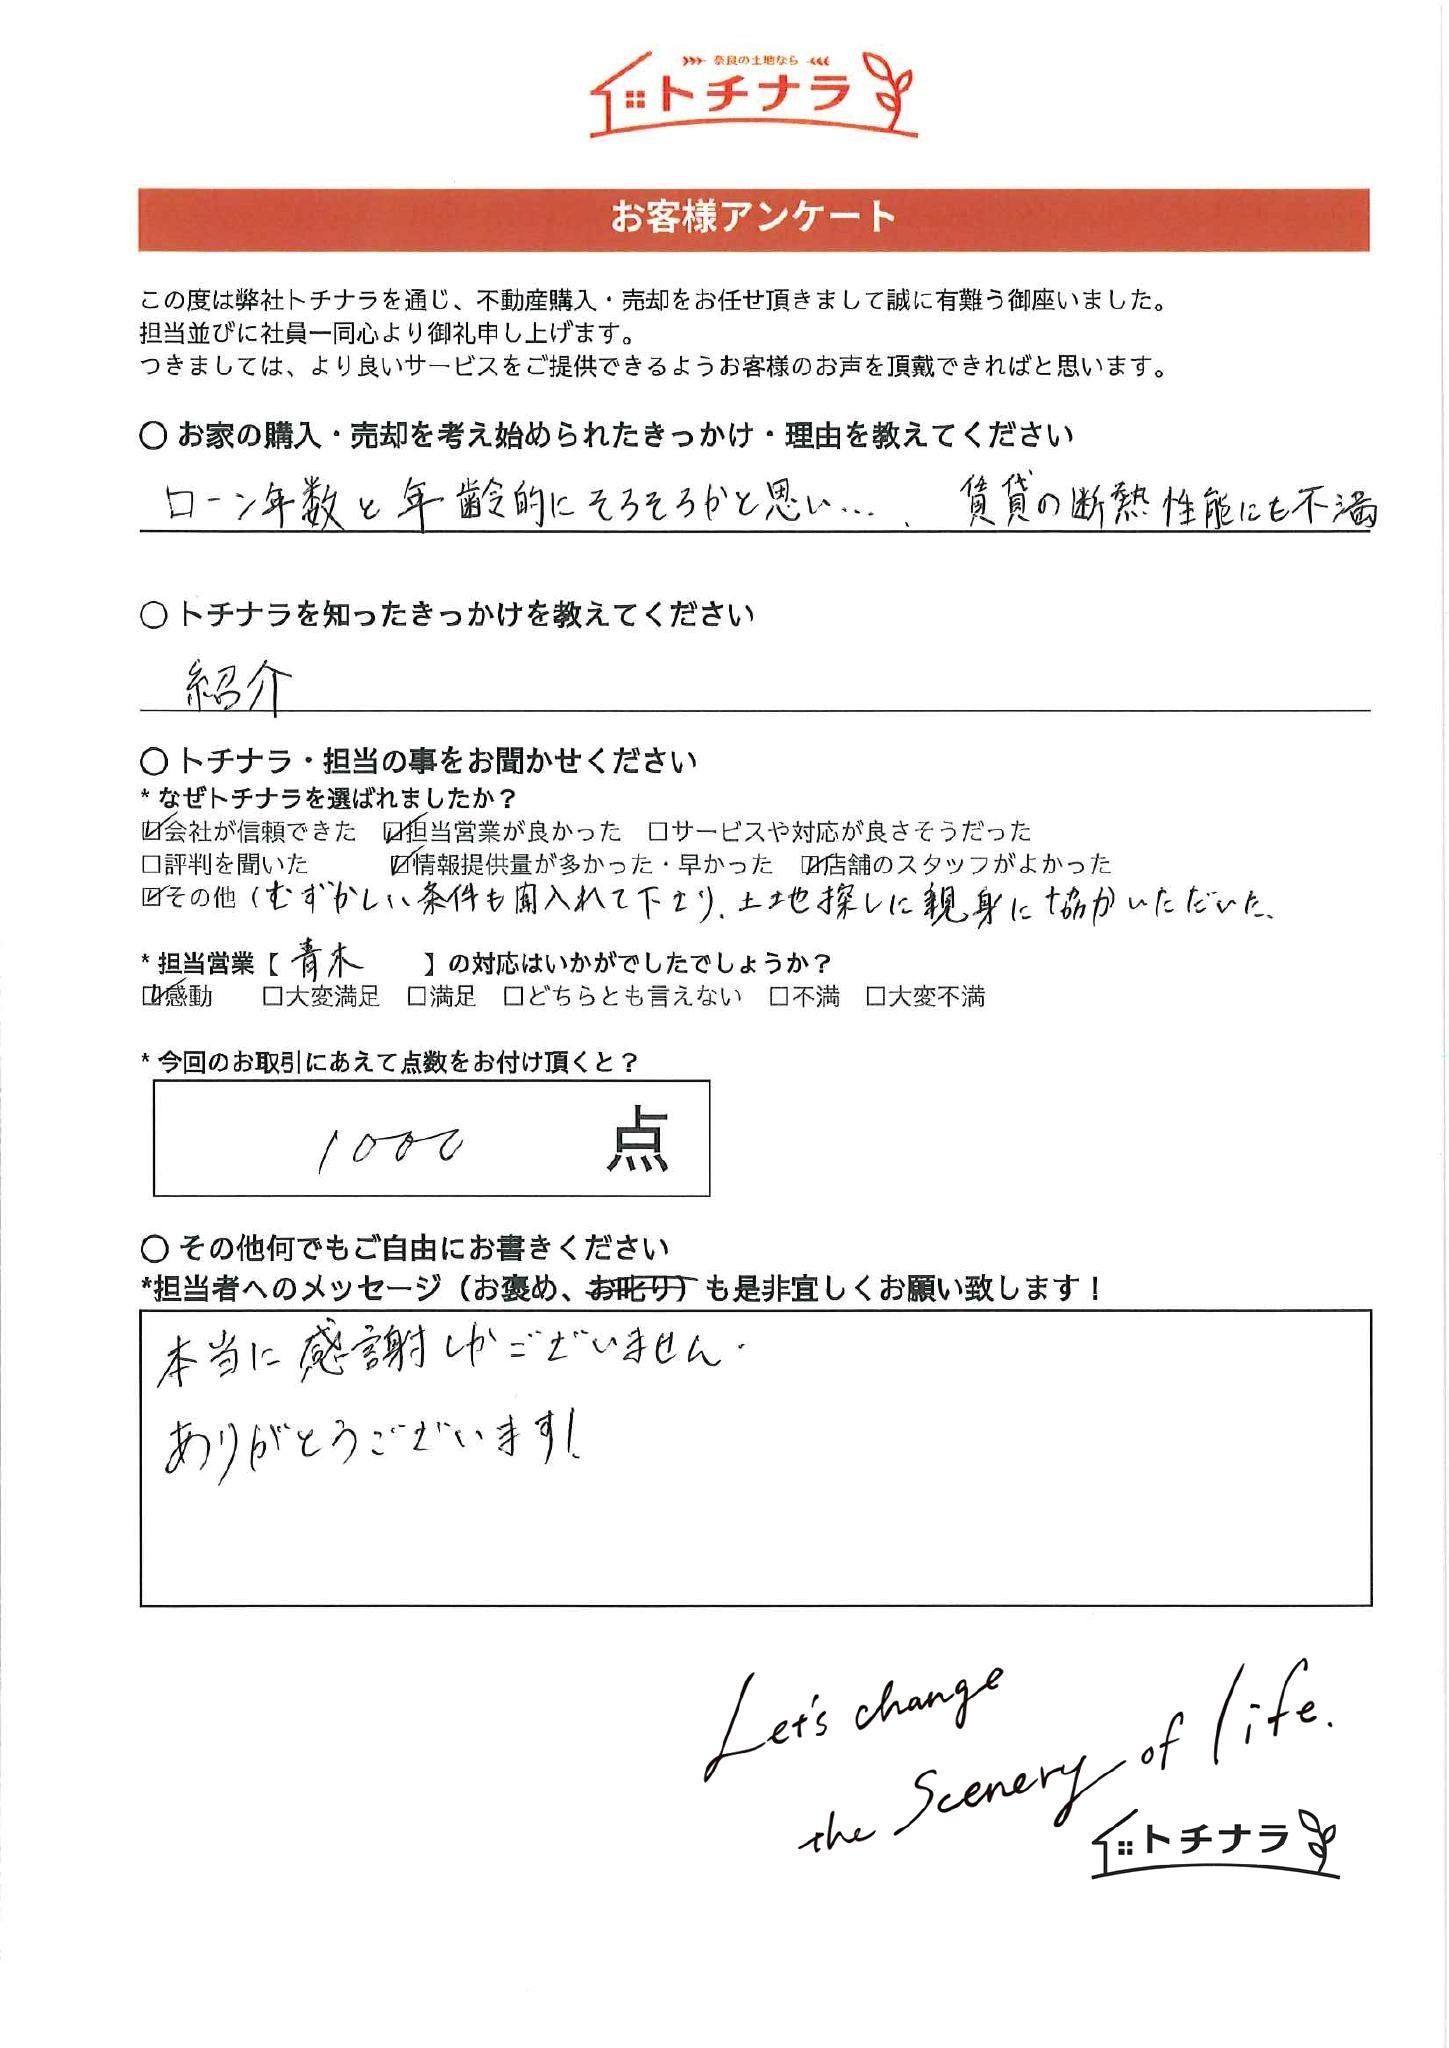 奈良の土地なら
トチナラ
お客様アンケート
この度は弊社トチナラを通じ、不動産購入・売却をお任せ頂きまして誠に有難う御座いました。
担当並びに社員一同心より御礼申し上げます。
つきましては、より良いサービスをご提供できるようお客様のお声を頂戴できればと思います。
〇 お家の購入・売却を考え始められたきっかけ・理由を教えてください
ローン年数と年齢的にそろそろかと思い…、賃貸の断熱性能にも不満
〇 トチナラを知ったきっかけを教えてください
紹介
〇 トチナラ・担当の事をお聞かせください
* なぜトチナラを選ばれましたか？
☑会社が信頼できた ☑担当営業が良かった □サービスや対応が良さそうだった
□評判を聞いた ☑情報提供量が多かった・早かった ☑店舗のスタッフがよかった
☑その他（むずかしい条件も聞入れて下さり、土地探しに親身に協力いただいた。
* 担当営業【 青木 】の対応はいかがでしたでしょうか？
☑感動 □大変満足 □満足 □どちらとも言えない □不満 □大変不満
* 今回のお取引にあえて点数をお付け頂くと？
1000 点
〇 その他何でもご自由にお書きください
*担当者へのメッセージ（お褒め、お叱り）も是非宜しくお願い致します！
本当に感謝しかございません。
ありがとうございます！
Let's change
the Scenery of life.
トチナラ